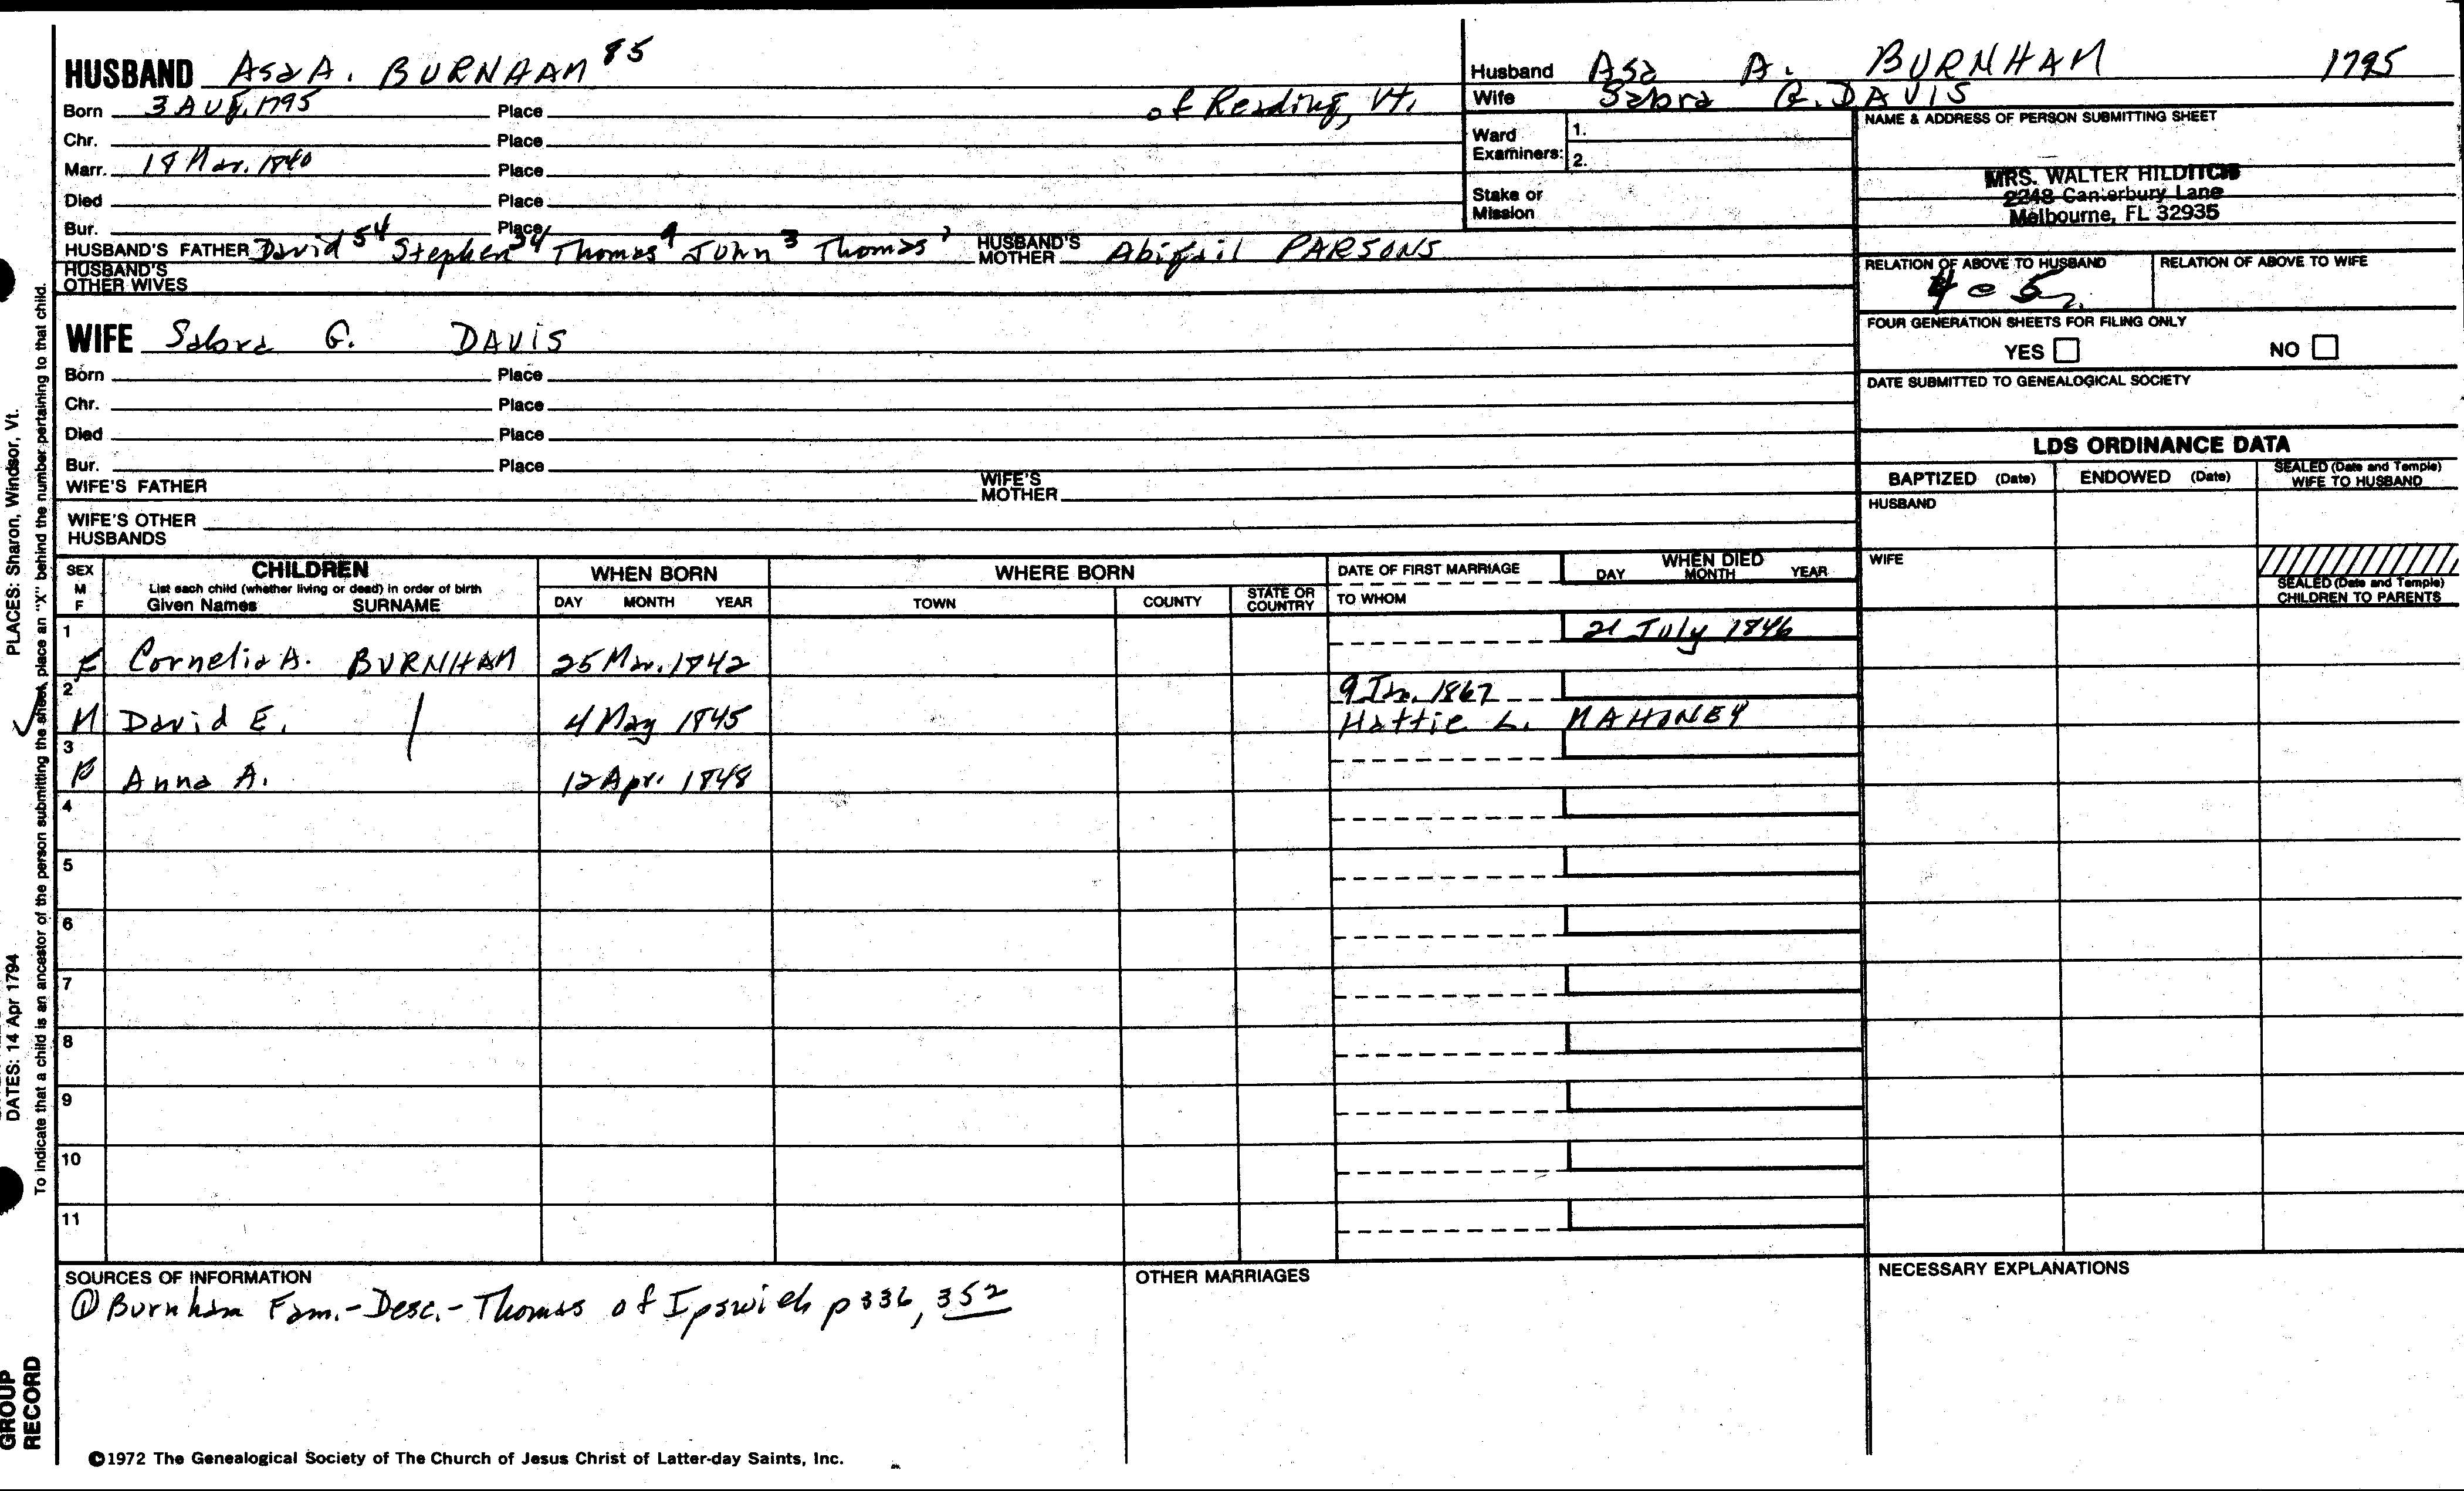 HUSBAND Asa A. BURNHAM 85
Born 3 Aug. 1795 Place of Reading, Vt.
Chr. Place
Marr. 18 Mar. 1840 Place
Died Place
Bur. Place
HUSBAND'S FATHER David 54 Stephen 34 Thomas 9 John 3 Thomas 1 HUSBAND'S MOTHER Abigail PARSONS
HUSBAND'S OTHER WIVES
Husband Asa A. BURNHAM 1795
Wife Sabra G. DAVIS
Ward Examiners: 1.
2.
Stake or Mission
NAME & ADDRESS OF PERSON SUBMITTING SHEET
MRS. WALTER HILDITCH
2248 Canterbury Lane
Melbourne, FL 32935
RELATION OF ABOVE TO HUSBAND RELATION OF ABOVE TO WIFE
FOUR GENERATION SHEETS FOR FILING ONLY
YES NO
DATE SUBMITTED TO GENEALOGICAL SOCIETY
WIFE Sabra G. DAVIS
Born Place
Chr. Place
Died Place
Bur. Place
WIFE'S FATHER WIFE'S MOTHER
WIFE'S OTHER HUSBANDS
LDS ORDINANCE DATA
BAPTIZED (Date) ENDOWED (Date) SEALED (Date and Temple) WIFE TO HUSBAND
HUSBAND
WIFE
SEALED (Date and Temple) CHILDREN TO PARENTS
SEX M F
CHILDREN
List each child (whether living or dead) in order of birth
Given Names SURNAME
WHEN BORN
DAY MONTH YEAR
WHERE BORN
TOWN COUNTY STATE OR COUNTRY
DATE OF FIRST MARRIAGE
TO WHOM
WHEN DIED
DAY MONTH YEAR
1 21 July 1846
F Cornelia A. BURNHAM 25 Mar. 1842
2 9 Jan. 1867
M David E. 4 May 1845 Hattie L. MAHONEY
3
F Anna A. 12 Apr. 1848
4
5
6
7
8
9
10
11
SOURCES OF INFORMATION
① Burnham Fam.-Desc.-Thomas of Ipswich p 336, 352
OTHER MARRIAGES
NECESSARY EXPLANATIONS
©1972 The Genealogical Society of The Church of Jesus Christ of Latter-day Saints, Inc.
PLACES: Sharon, Windsor, Vt.
DATES: 14 Apr 1794
To indicate that a child is an ancestor of the person submitting the sheet, place an "X" behind the number pertaining to that child.
GROUP
RECORD